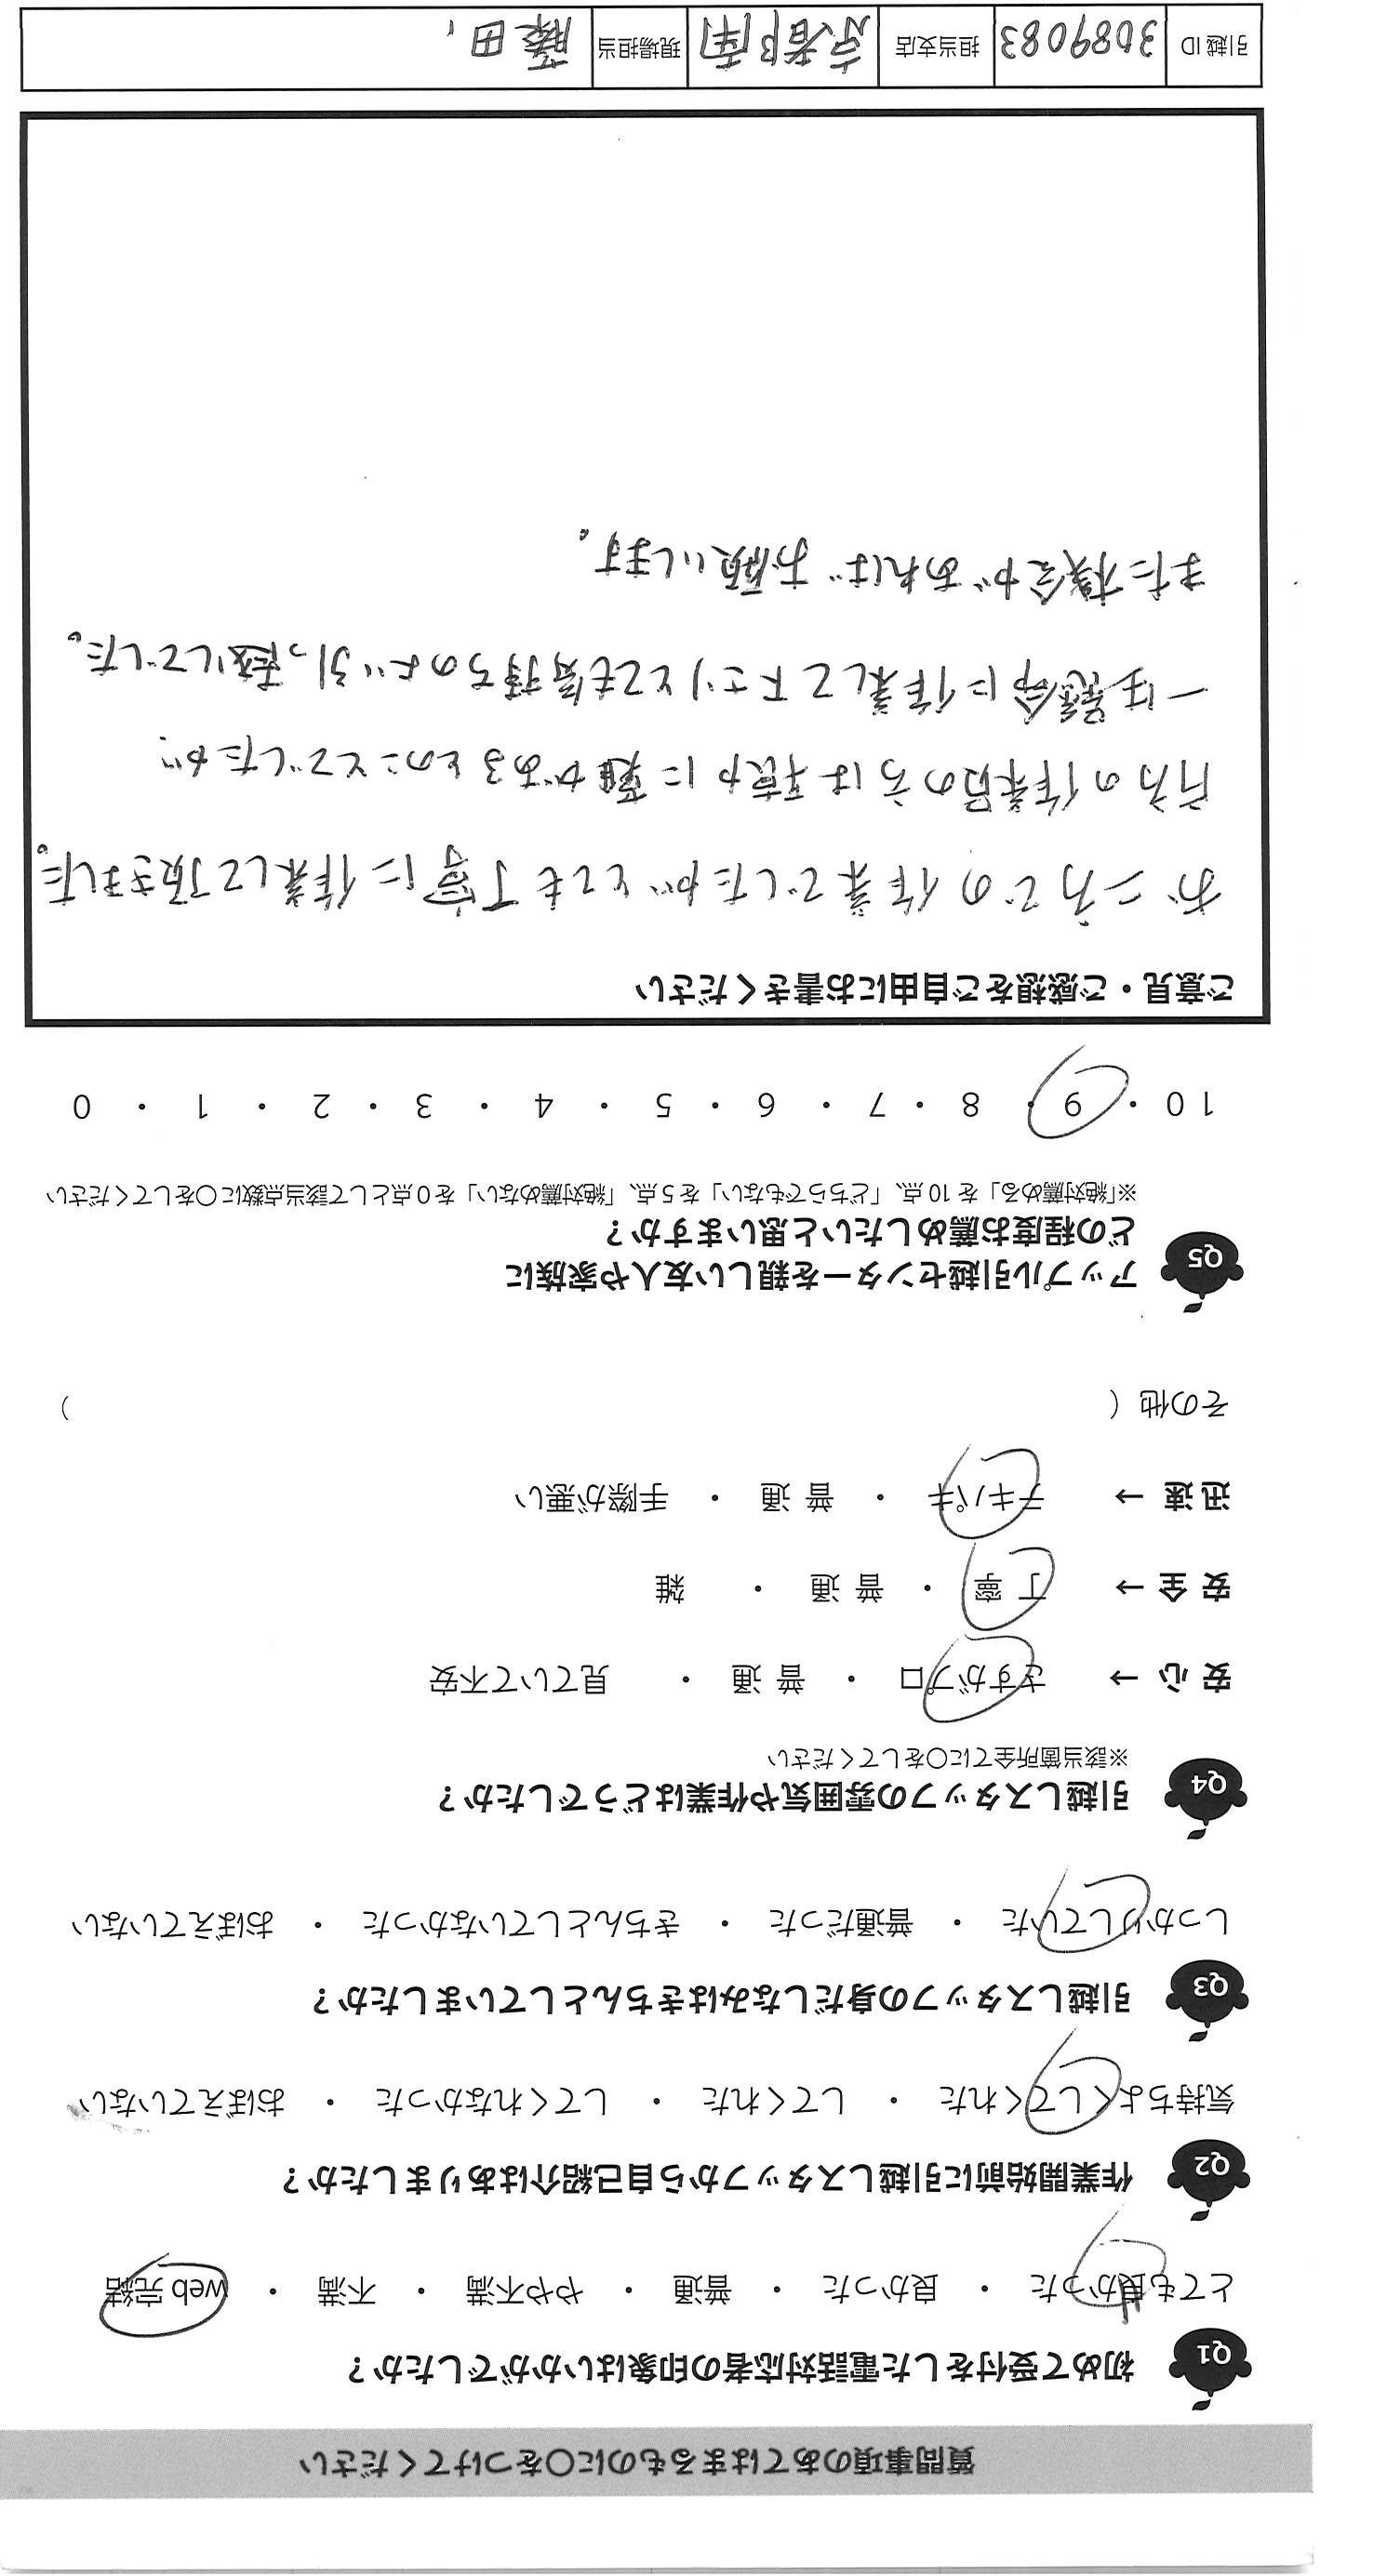 質問事項のあてはまるものに〇をつけてください
Q1 初めて受付をした電話対応者の印象はいかがでしたか？
とても良かった ・ 良かった ・ 普通 ・ やや不満 ・ 不満 ・ web完結
Q2 作業開始前に引越しスタッフから自己紹介はありましたか？
気持ちよくしてくれた ・ してくれた ・ してくれなかった ・ おぼえていない
Q3 引越しスタッフの身だしなみはきちんとしていましたか？
しっかりしていた ・ 普通だった ・ きちんとしていなかった ・ おぼえていない
Q4 引越しスタッフの雰囲気や作業はどうでしたか？
※該当箇所全てに〇をしてください
安心 → さすがプロ ・ 普通 ・ 見ていて不安
安全 → 丁寧 ・ 普通 ・ 雑
迅速 → テキパキ ・ 普通 ・ 手際が悪い
その他（ ）
Q5 アップル引越センターを親しい友人や家族に
どの程度お薦めしたいと思いますか？
※「絶対薦める」を10点、「どちらでもない」を5点、「絶対薦めない」を0点として該当点数に〇をしてください
10 ・ 9 ・ 8 ・ 7 ・ 6 ・ 5 ・ 4 ・ 3 ・ 2 ・ 1 ・ 0
ご意見・ご感想をご自由にお書きください
お二方での作業でしたがとても丁寧に作業して頂きました。
片方の作業員の方は聴力に難があるとのことでしたが、
一生懸命に作業して下さりとても気持ちのよい引っ越しでした。
また機会があればお願いします。
引越ID 3089083 担当支店 京都南 現場担当 藤田